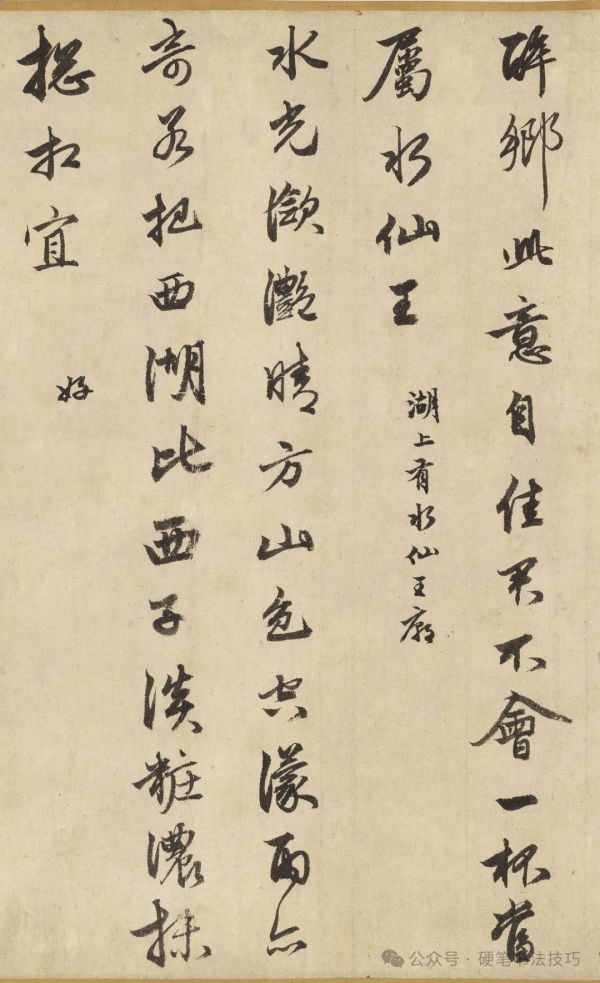 醉鄉此意自佳君不會一杯當
屬水仙王 湖上有水仙王廟
水光瀲灩晴方山色空濛雨亦
奇若把西湖比西子淡粧濃抹
總相宜 好
公众号 · 硬笔书法技巧